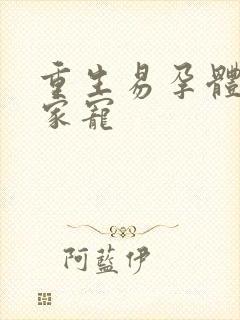 重生易孕體
家寵
阿藍伊